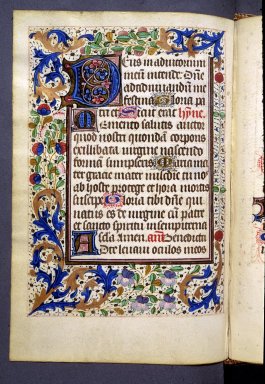 Deus in adiutorium
meū intende. Dñe
ad adiuuandum
festina Gloria pa
tri et Sicut erat hyne.
Memento salutis auctor
quod nostri quondā corporis
ex illibata uirgine nascendo
formā sumpseris Maria ma
ter gracie mater misericordie tu nos
ab hoste protege et hora mortis
suscipe Gloria tibi dñe qui
natus es de uirgine cū patre
et sancto spiritu in sempiterna
secla Amen. añ Benedicta
Ad te leuaui oculos meos